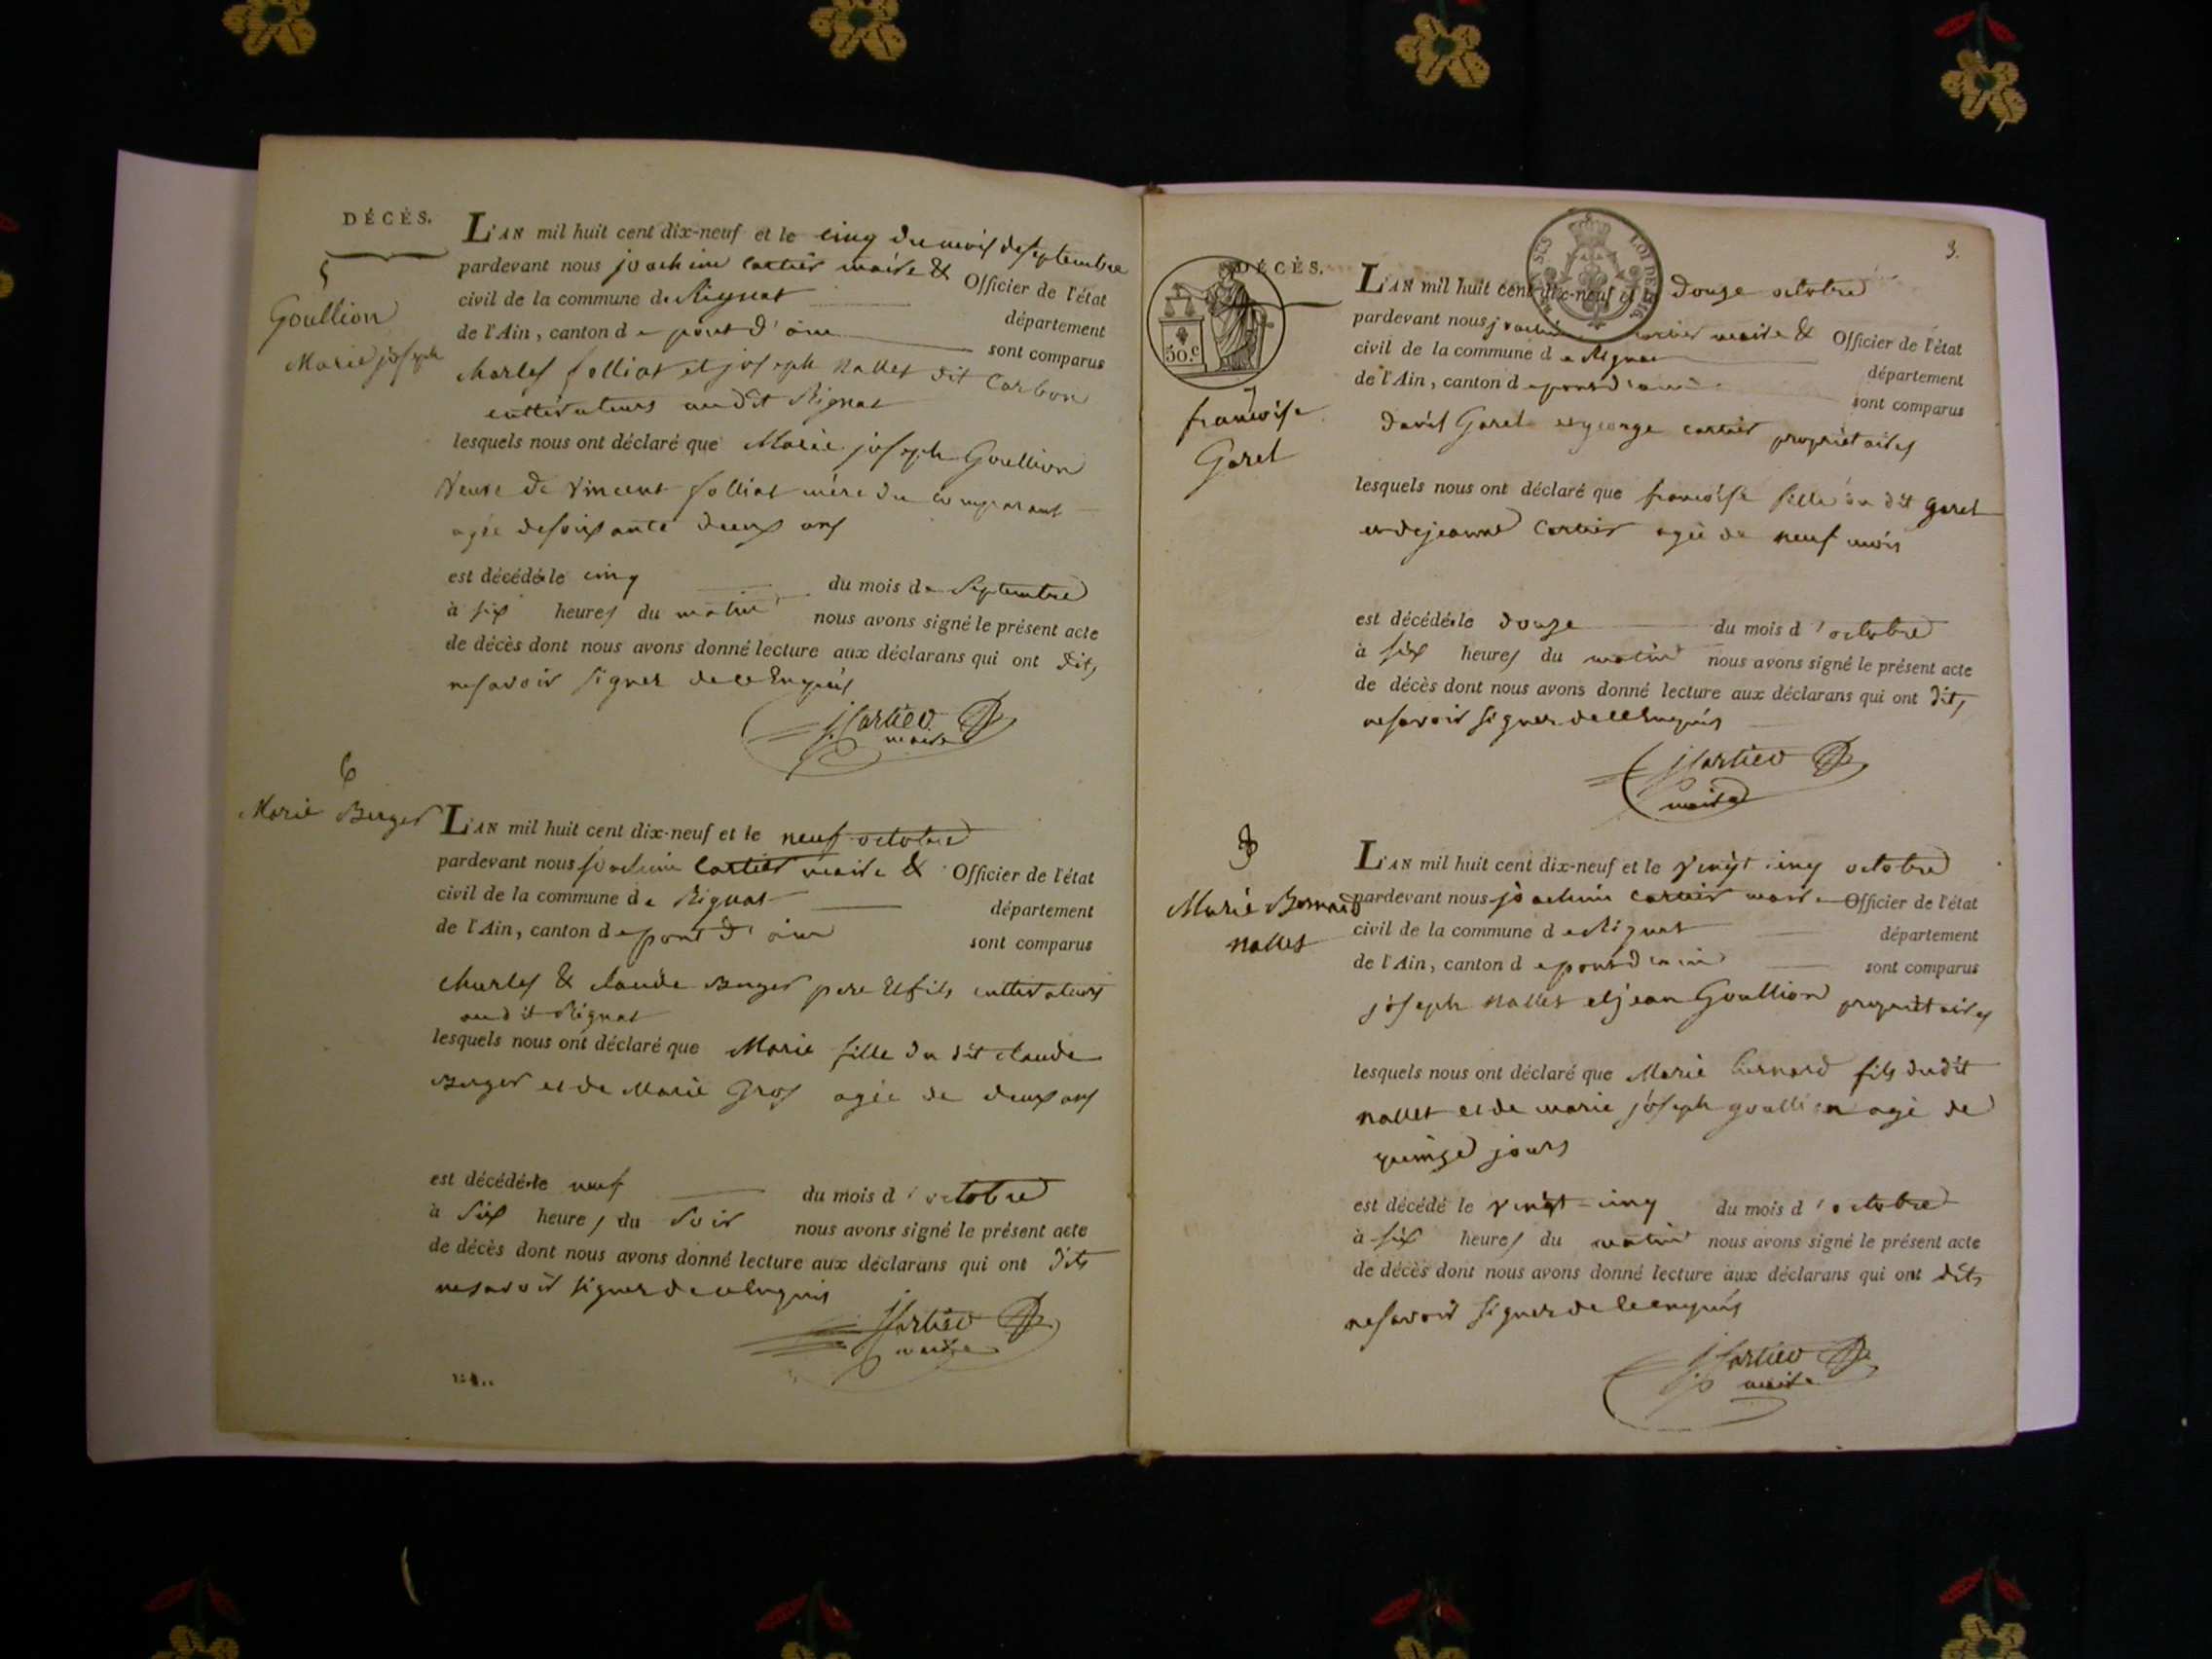 DÉCÈS.
5
Goullion
Marie joseph
L'AN mil huit cent dix-neuf et le cinq du mois de septembre
pardevant nous joachim Cartier maire & Officier de l'état
civil de la commune de Rignat département
de l'Ain, canton de pont d'ain sont comparus
Charles folliat et joseph Nallet dit Carbon
cultivateurs audit Rignat
lesquels nous ont déclaré que Marie joseph Goullion
Veuve de Vincent folliat mère du comparant
agée de soixante deux ans
est décédée le cinq du mois de Septembre
à six heures du matin nous avons signé le présent acte
de décès dont nous avons donné lecture aux déclarans qui ont dits
ne savoir signer de ce Enquis
jCartier
maire
6
Marie Berger
L'AN mil huit cent dix-neuf et le neuf octobre
pardevant nous joachim Cartier maire & Officier de l'état
civil de la commune de Rignat département
de l'Ain, canton de pont d'ain sont comparus
Charles & claude Berger pere Et fils cultivateurs
audit Rignat
lesquels nous ont déclaré que Marie fille du dit claude
Berger et de Marie Gros agée de deux ans
est décédée le neuf du mois d'octobre
à Six heures du Soir nous avons signé le présent acte
de décès dont nous avons donné lecture aux déclarans qui ont dits
ne savoir signer de ce Enquis
jCartier
maire
3.
DÉCÈS.
50.c
LOI DE 1816
7
francoise
Garel
L'AN mil huit cent dix-neuf et le Douze octobre
pardevant nous joachim Cartier maire & Officier de l'état
civil de la commune de Rignat département
de l'Ain, canton de pont d'ain sont comparus
David Garel et george cartier propriétaires
lesquels nous ont déclaré que francoise fille du dit garel
et de jeanne Cartier agée de neuf mois
est décédée le douze du mois d'octobre
à six heures du matin nous avons signé le présent acte
de décès dont nous avons donné lecture aux déclarans qui ont dits
ne savoir signer de ce Enquis
jCartier
maire
8
Marie Bernard
Nallet
L'AN mil huit cent dix-neuf et le Vingt cinq octobre
pardevant nous joachim cartier maire Officier de l'état
civil de la commune de Rignat département
de l'Ain, canton de pont d'ain sont comparus
joseph Nallet et jean Goullion propriétaires
lesquels nous ont déclaré que Marie bernard fils dudit
Nallet et de marie joseph goullion agé de
quinze jours
est décédé le vingt-cinq du mois d'octobre
à six heures du matin nous avons signé le présent acte
de décès dont nous avons donné lecture aux déclarans qui ont dits
ne savoir signer de ce enquis
jCartier
maire